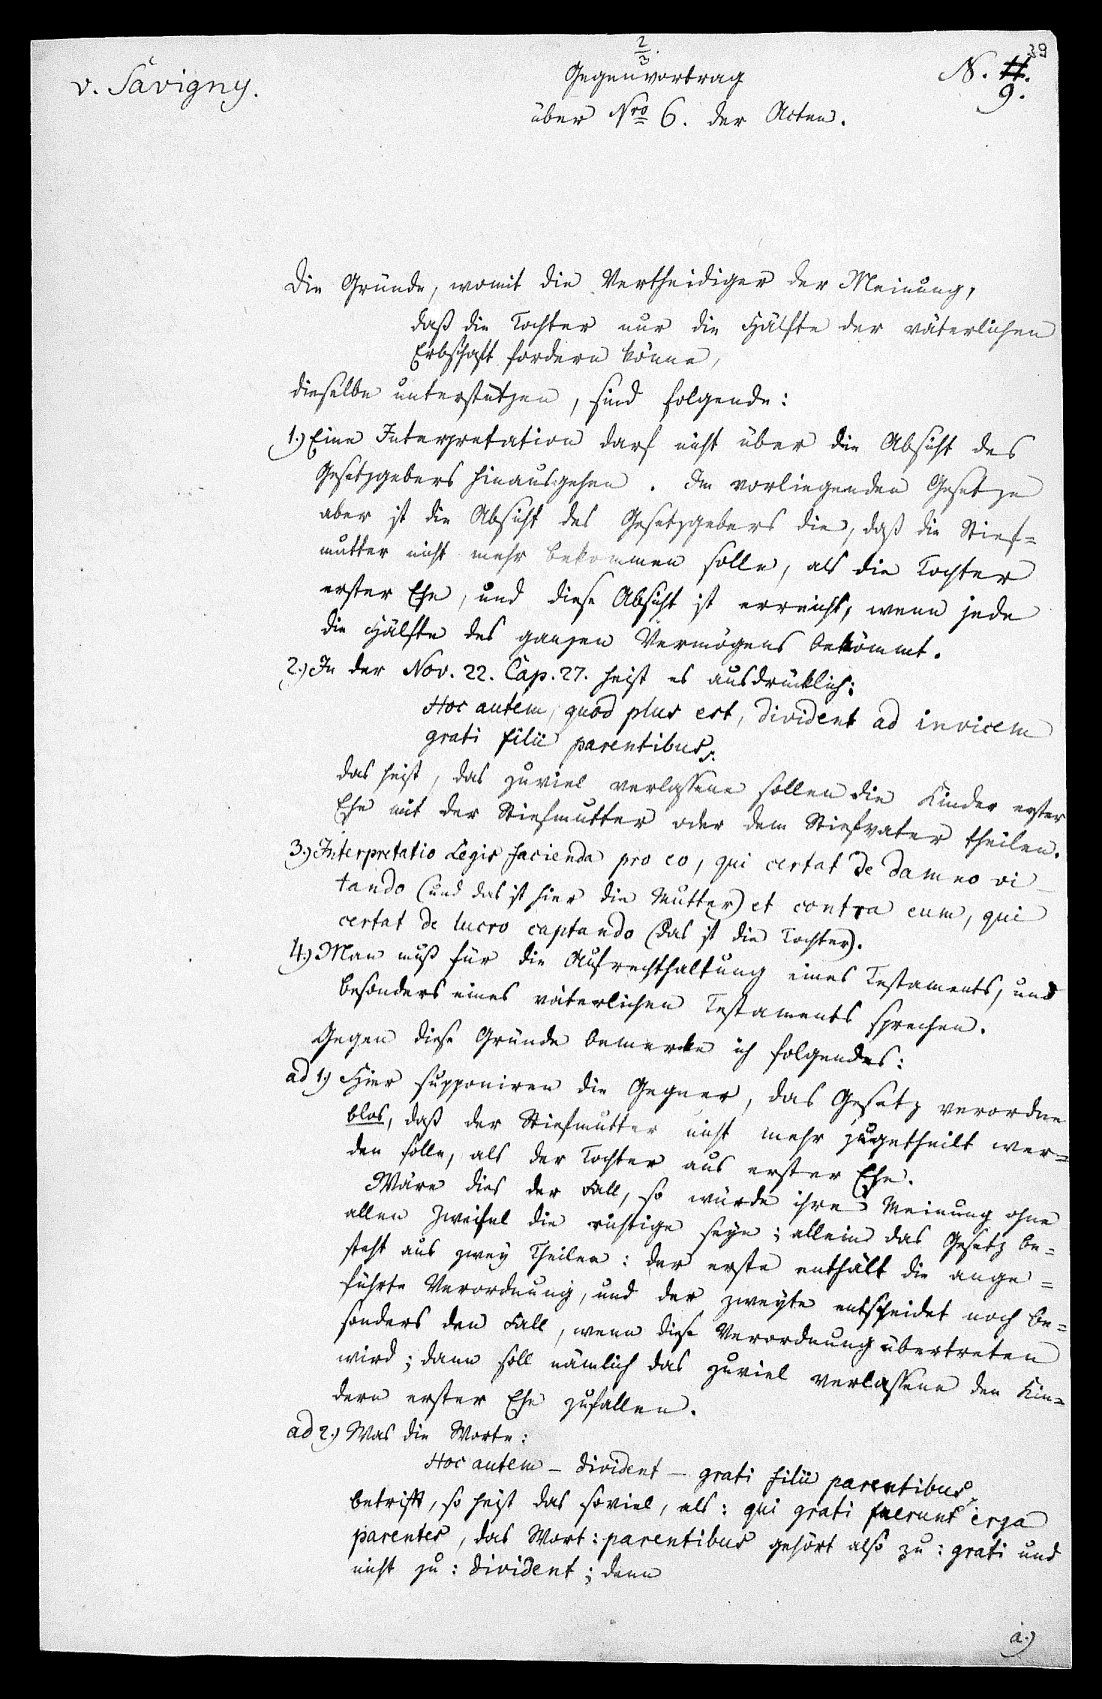 39
v. Savigny.
2/3.
Gegenvortrag
N. #.
9.
über Nro 6. der Acten.
Die Gründe, womit die Vertheidiger der Meinung,
daß die Tochter nur die Hälfte der väterlichen
Erbschaft fordern könne,
dieselbe unterstützen, sind folgende:
1.) Eine Interpretation darf nicht über die Absicht des
Gesetzgebers hinausgehen. Im vorliegenden Gesetze
aber ist die Absicht des Gesetzgebers die, daß die Stief=
mutter nicht mehr bekommen solle, als die Tochter
erster Ehe, und diese Absicht ist erreicht, wenn jede
die Hälfte des ganzen Vermögens bekömmt.
2.) In der Nov. 22. Cap. 27. heist es ausdrücklich:
Hoc autem, quod plus est, dividunt ad invicem
grati filii parentibus;
das heist, das zuviel verlassene sollen die Kinder erster
Ehe mit der Stiefmutter oder dem Stiefvater theilen.
3.) Interpretatio Legis facienda pro eo, qui certat de damno vi-
tando (und das ist hier die Mutter) et contra eum, qui
certat de lucro captando (das ist die Tochter).
4.) Man muß für die Aufrechthaltung eines Testaments, und
besonders eines väterlichen Testaments sprechen.
Gegen diese Gründe bemerke ich folgendes:
ad 1.) Hier supponiren die Gegner, das Gesetz verordne
blos, daß der Stiefmutter nicht mehr zugetheilt wer=
den solle, als der Tochter aus erster Ehe.
Wäre dies der Fall, so würde ihre Meinung ohne
allen Zweifel die richtige seyn; allein das Gesetz be=
steht aus zwey Theilen: der erste enthält die ange=
führte Verordnung, und der zweyte entscheidet noch be=
sonders den Fall, wenn diese Verordnung übertreten
wird; dann soll nämlich das zuviel verlassene den Kin=
dern erster Ehe zufallen.
ad 2.) Was die Worte:
Hoc autem – divident – grati filii parentibus,
betrifft, so heist das soviel, als: qui grati fuerunt erga
parentes, das Wort: parentibus gehört also zu: grati und
nicht zu: divident; denn
a.)